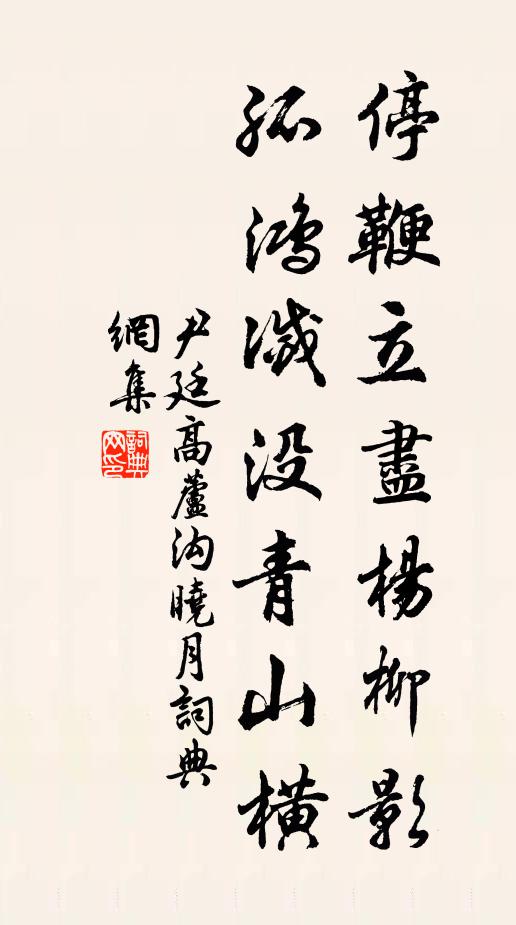 停鞭立盡楊柳影
孤鴻滅没青山橫
尹廷高蘆沟曉月詞典
網集
詞典網印